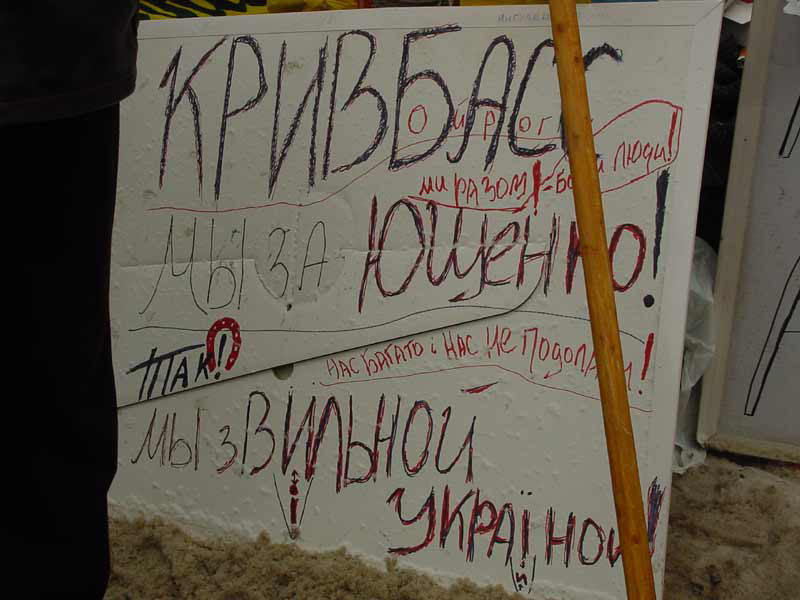 КРИВБАСС
ми разом! = Бо люди!
МЫ ЗА ЮЩЕНКО!
ТАК!
НАС БАГАТО і НАС НЕ ПОДОЛАТИ!
МЫ З ВИЛЬНОЙ
УКРАЇНОЙ!